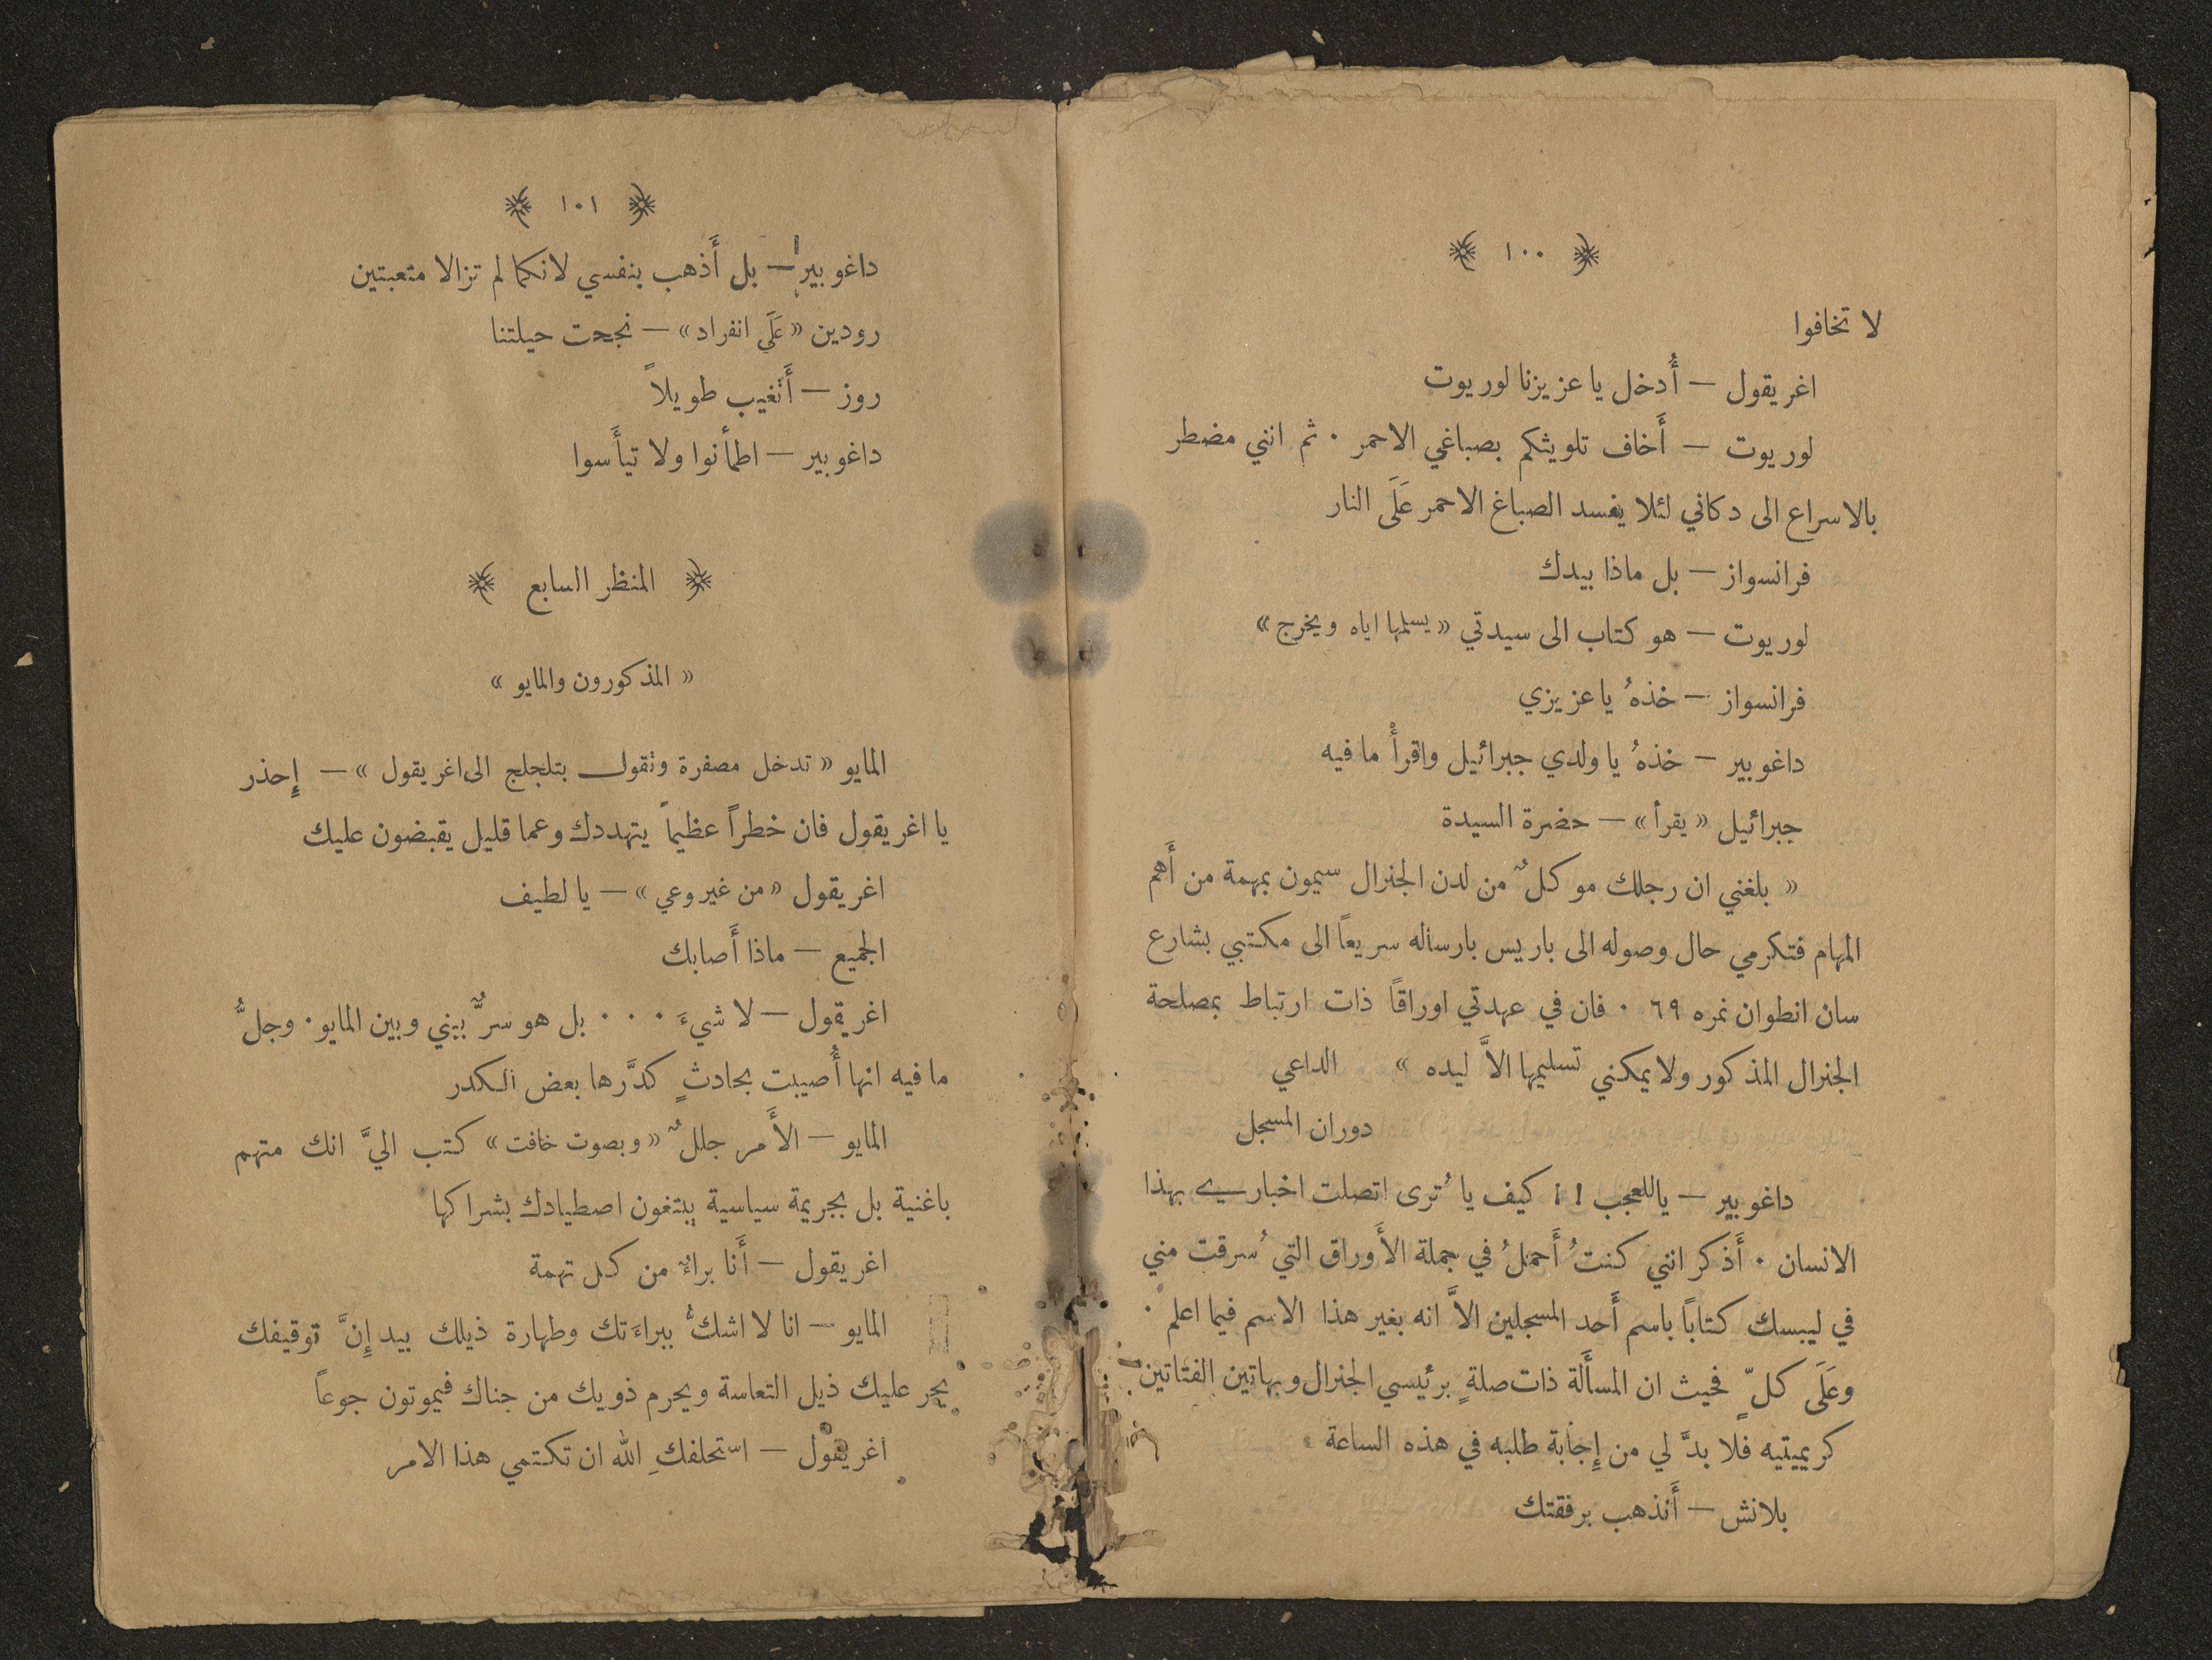 ١٠٠
لا تخافوا
اغريقول — أُدخل يا عزيزنا لوريوت
لوريوت — أَخاف تلويثكم بصباغي الاحمر ٠ ثم انني مضطر
بالاسراع الى دكاني لئلا يفسد الصباغ الاحمر عَلَى النار
فرانسواز — بل ماذا بيدك
لوريوت — هو كتاب الى سيدتي « يسلمها اياه ويخرج »
فرانسواز — خذهُ يا عزيزي
داغوبير — خذهُ يا ولدي جبرائيل واقرأْ ما فيه
جبرائيل « يقرأ » — حضرة السيدة
« بلغني ان رجلك موكلٌ من لدن الجنرال سيمون بمهمة من أَهم
المهام فتكرمي حال وصوله الى باريس بارساله سريعاً الى مكتبي بشارع
سان انطوان نمره ٦٩ ٠ فان في عهدتي اوراقاً ذات ارتباط بمصلحة
الجنرال المذكور ولا يمكنني تسليمها الاَّ ليده » الداعي
دوران المسجل
داغوبير — ياللعجب !! كيف يا ُترى اتصلت اخباري بهذا
الانسان ٠ أَذكر انني كنتُ أَحملُ في جملة الأَوراق التي ُسرقت مني
في ليبسك كتاباً باسم أَحد المسجلين الاَّ انه بغير هذا الاسم فيما اعلم ٠
وعَلَى كلٍّ فحيث ان المسأَلة ذات صلةٍ برئيسي الجنرال وبهاتين الفتاتين
كريميتيه فلا بدَّ لي من إِجابة طلبه في هذه الساعة
بلانش — أَنذهب برفقتك
١٠١
داغوبير — بل أَذهب بنفسي لانكما لم تزالا متعبتين
رودين « عَلَى انفراد » — نجحت حيلتنا
روز — أَتغيب طويلاً
داغوبير — اطمأنوا ولا تيأَسوا
المنظر السابع
« المذكورون والمايو »
المايو « تدخل مصفرة وتقول بتلجلج الى اغريقول » — إِحذر
يا اغريقول فان خطراً عظيماً يتهددك وعما قليل يقبضون عليك
اغريقول « من غير وعي » — يا لطيف
الجميع — ماذا أَصابك
اغريقول — لا شيءَ ٠ ٠ ٠ بل هو سرٌّ بيني وبين المايو ٠ وجلُّ
ما فيه انها أُصيبت بحادثٍ كدَّرها بعض الكدر
المايو — الأَمر جللٌ « وبصوت خافت » كتب اليَّ انك متهم
باغنية بل بجريمة سياسية يبتغون اصطيادك بشراكها
اغريقول — أَنا براءٌ من كل تهمة
المايو — انا لا اشكُّ ببراءَتك وطهارة ذيلك بيد إِنَّ توقيفك
يجر عليك ذيل التعاسة ويحرم ذويك من جناك فيموتون جوعاً
اغريقول — استحلفكِ الله ان تكتمي هذا الامر